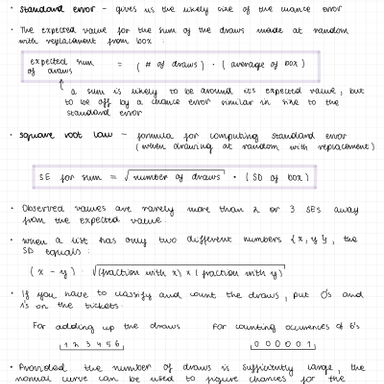 • Standard error - gives us the likely size of the chance error
• The expected value for the sum of the draws made at random
with replacement from box :
expected sum of draws = ( # of draws ) · ( average of box )
↑ a sum is likely to be around its expected value, but
to be off by a chance error similar in size to the
standard error
• Square root law - formula for computing standard error
(when drawing at random with replacement)
SE for sum = √number of draws · (SD of box)
• Observed values are rarely more than 2 or 3 SEs away
from the expected value.
• When a list has only two different numbers {x, y}, the
SD equals :
(x - y) · √(fraction with x) x (fraction with y)
• If you have to classify and count the draws, put 0's and
1's on the tickets.
For adding up the draws For counting occurences of 6's
1 2 3 4 5 6 0 0 0 0 0 1
• Provided the number of draws is sufficiently large, the
normal curve can be used to figure chances for the